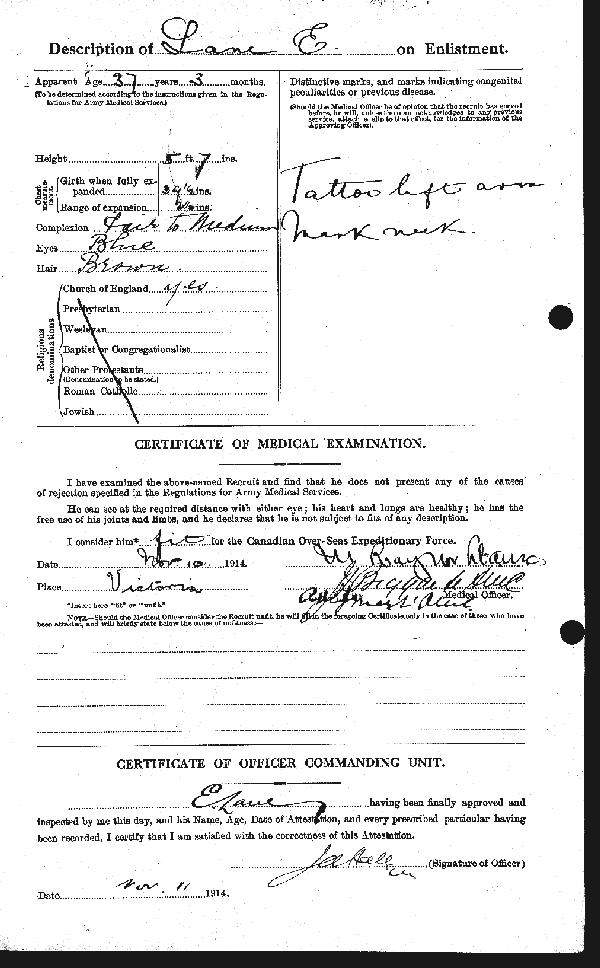 Description of Lane E. on Enlistment.
Apparent Age 37 years 3 months.
(To be determined according to the instructions given in the Regu-
lations for Army Medical Services.)
Height 5 ft. 7 ins.
Chest measurement.
Girth when fully ex-
panded ins.
Range of expansion ins.
Complexion Fair to Medium
Eyes Blue
Hair Brown.
Religious denominations.
Church of England yes
Presbyterian
Wesleyan
Baptist or Congregationalist
Other Protestants
(Denomination to be stated.)
Roman Catholic
Jewish
Distinctive marks, and marks indicating congenital
peculiarities or previous disease.
(Should the Medical Officer be of opinion that the recruit has served
before, he will, unless the man acknowledges to any previous
service, attach a slip to that effect, for the information of the
Approving Officer).
Tattoo left arm
Mark neck.
CERTIFICATE OF MEDICAL EXAMINATION.
I have examined the above-named Recruit and find that he does not present any of the causes
of rejection specified in the Regulations for Army Medical Services.
He can see at the required distance with either eye; his heart and lungs are healthy; he has the
free use of his joints and limbs, and he declares that he is not subject to fits of any description.
I consider him* fit for the Canadian Over-Seas Expeditionary Force.
Date Nov 10 1914.
Place Victoria
Medical Officer.
*Insert here "fit" or "unfit."
NOTE.—Should the Medical Officer consider the Recruit unfit, he will fill in the foregoing Certificate only in the case of those who have
been attested, and will briefly state below the cause of unfitness:—
CERTIFICATE OF OFFICER COMMANDING UNIT.
E Lane having been finally approved and
inspected by me this day, and his Name, Age, Date of Attestation, and every prescribed particular having
been recorded, I certify that I am satisfied with the correctness of this Attestation.
(Signature of Officer)
Date Nov. 11 1914.